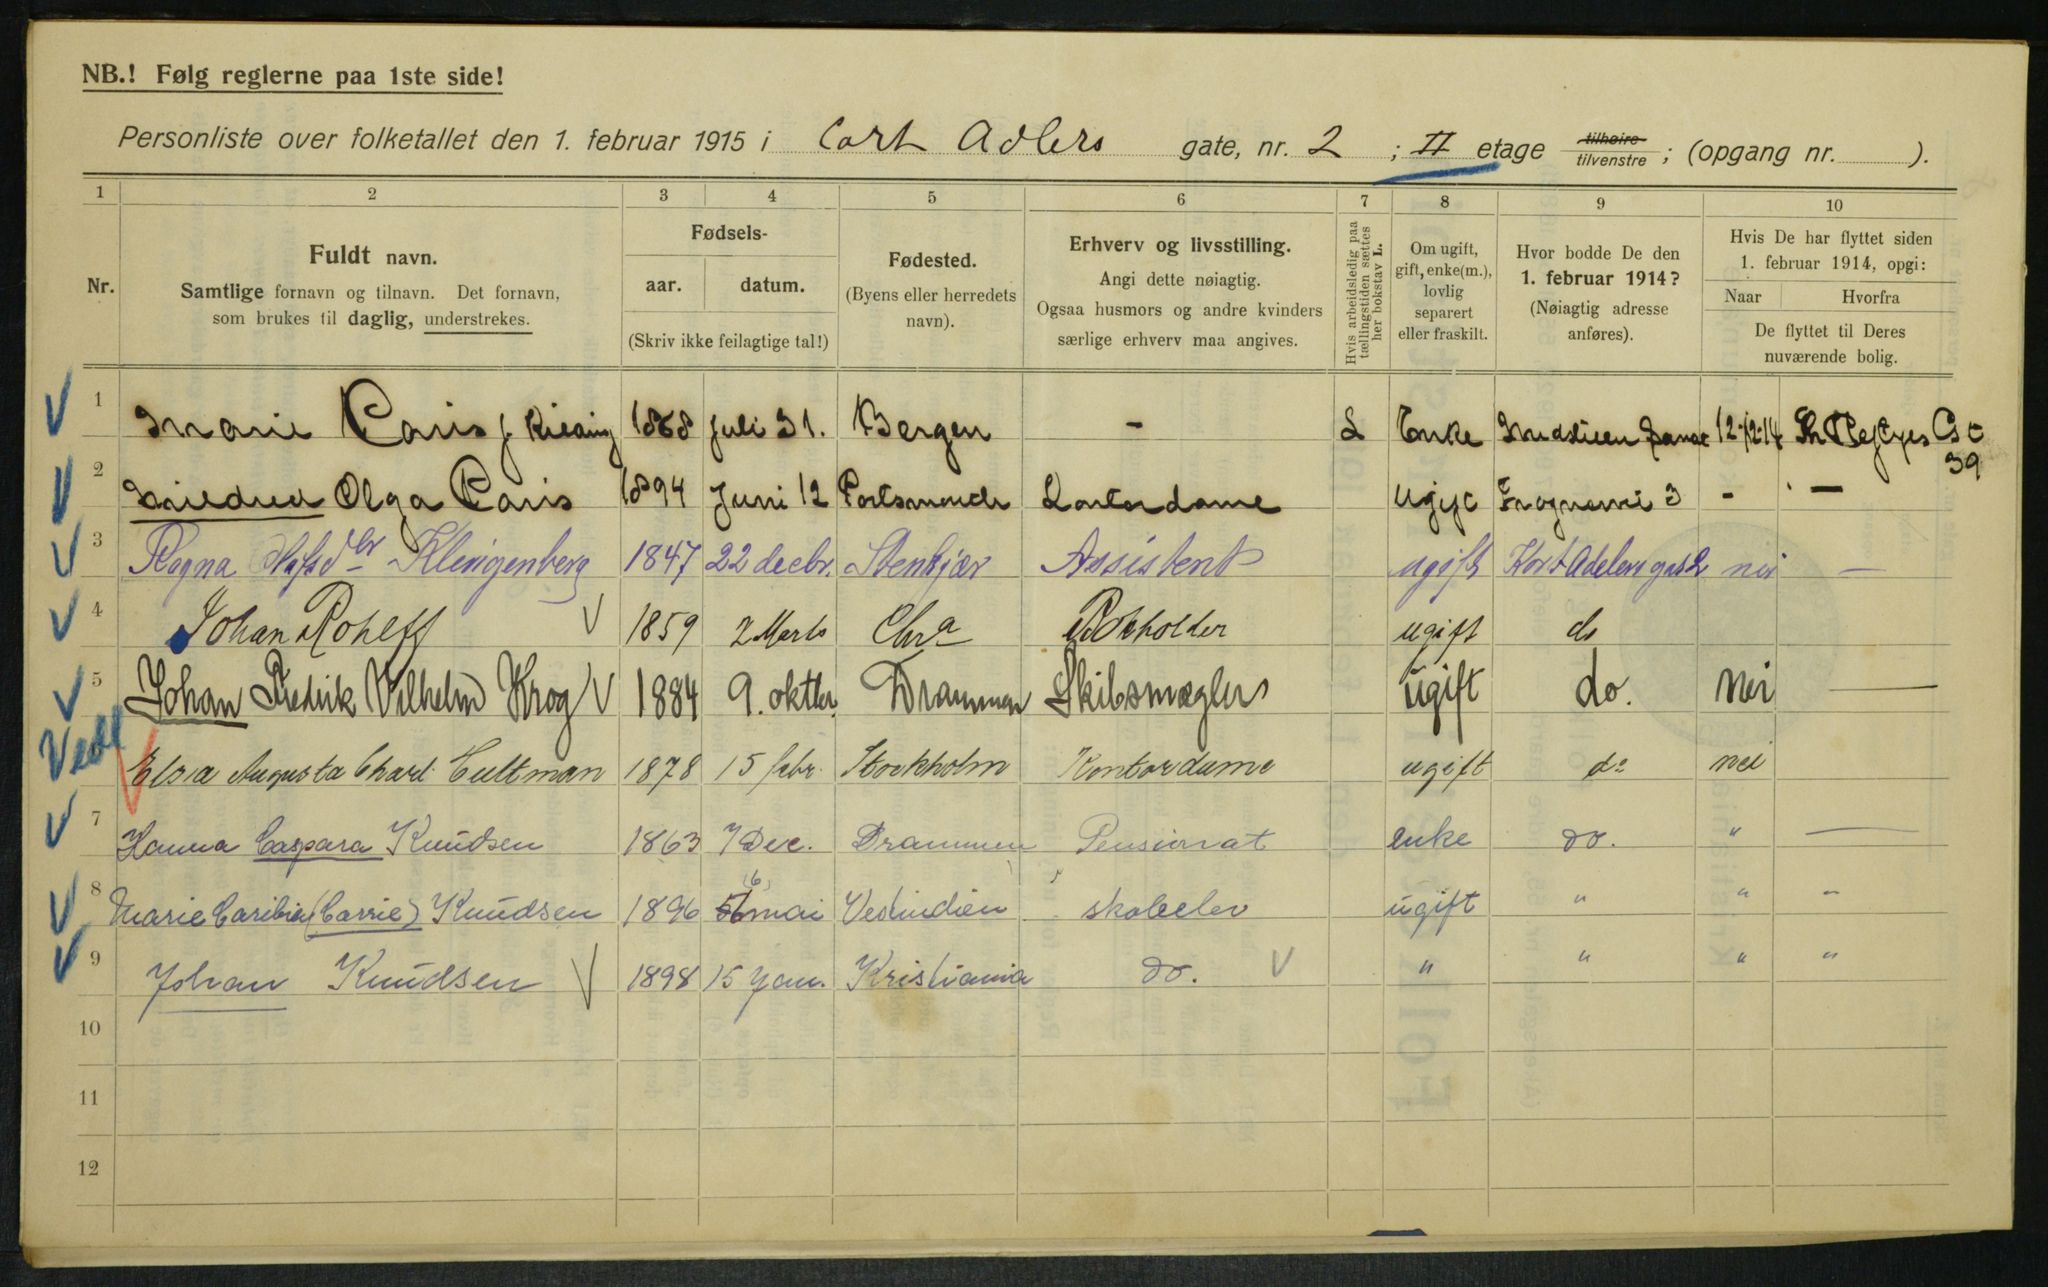 NB.! Følg reglerne paa 1ste side!
Personliste over folketallet den 1. februar 1915 i Cort Adlers gate, nr. 2 ; II etage tilhøire tilvenstre ; (opgang nr. ).
1 2 3 4 5 6 7 8 9 10
Nr.
Fuldt navn.
Samtlige fornavn og tilnavn. Det fornavn,
som brukes til daglig, understrekes.
Fødsels-
aar. datum.
(Skriv ikke feilagtige tal!)
Fødested.
(Byens eller herredets
navn).
Erhverv og livsstilling.
Angi dette nøiagtig.
Ogsaa husmors og andre kvinders
særlige erhverv maa angives.
Hvis arbeidsledig paa
tællingstiden sættes
her bokstav L.
Om ugift,
gift, enke(m.),
lovlig
separert
eller fraskilt.
Hvor bodde De den
1. februar 1914?
(Nøiagtig adresse
anføres).
Hvis De har flyttet siden
1. februar 1914, opgi:
Naar Hvorfra
De flyttet til Deres
nuværende bolig.
1 Marie Paris f. 1868 Juli 31. Bergen - L Enke 12-12-14 Th Heftyes Gt 39
2 Olga Paris 1894 Juni 12 Portsmouth Kontordame ugift Frognervei 3 - -
3 Ragna Klingenberg 1847 22 decbr. Stenkjær Assistent ugift Kort Adelers gad 2 nei -
4 Johan Roheff 1859 2 Marts Chra Bokholder ugift do
5 Johan Fredrik Vilhelm Krog 1884 9. oktbr. Drammen Skibsmægler ugift do. Nei -
Elsa Augusta Charl. Cultman 1878 15 febr. Stockholm Kontordame ugift do nei
7 Hanna Caspara Knudsen 1863 7 Dec. Drammen Pensionat enke do. " -
8 Marie Caribia (Carrie) Knudsen 1896 6 mai Vestindien skoleelev ugift " " "
9 Johan Knudsen 1898 15 Jan. Kristiania do. " " " "
10
11
12